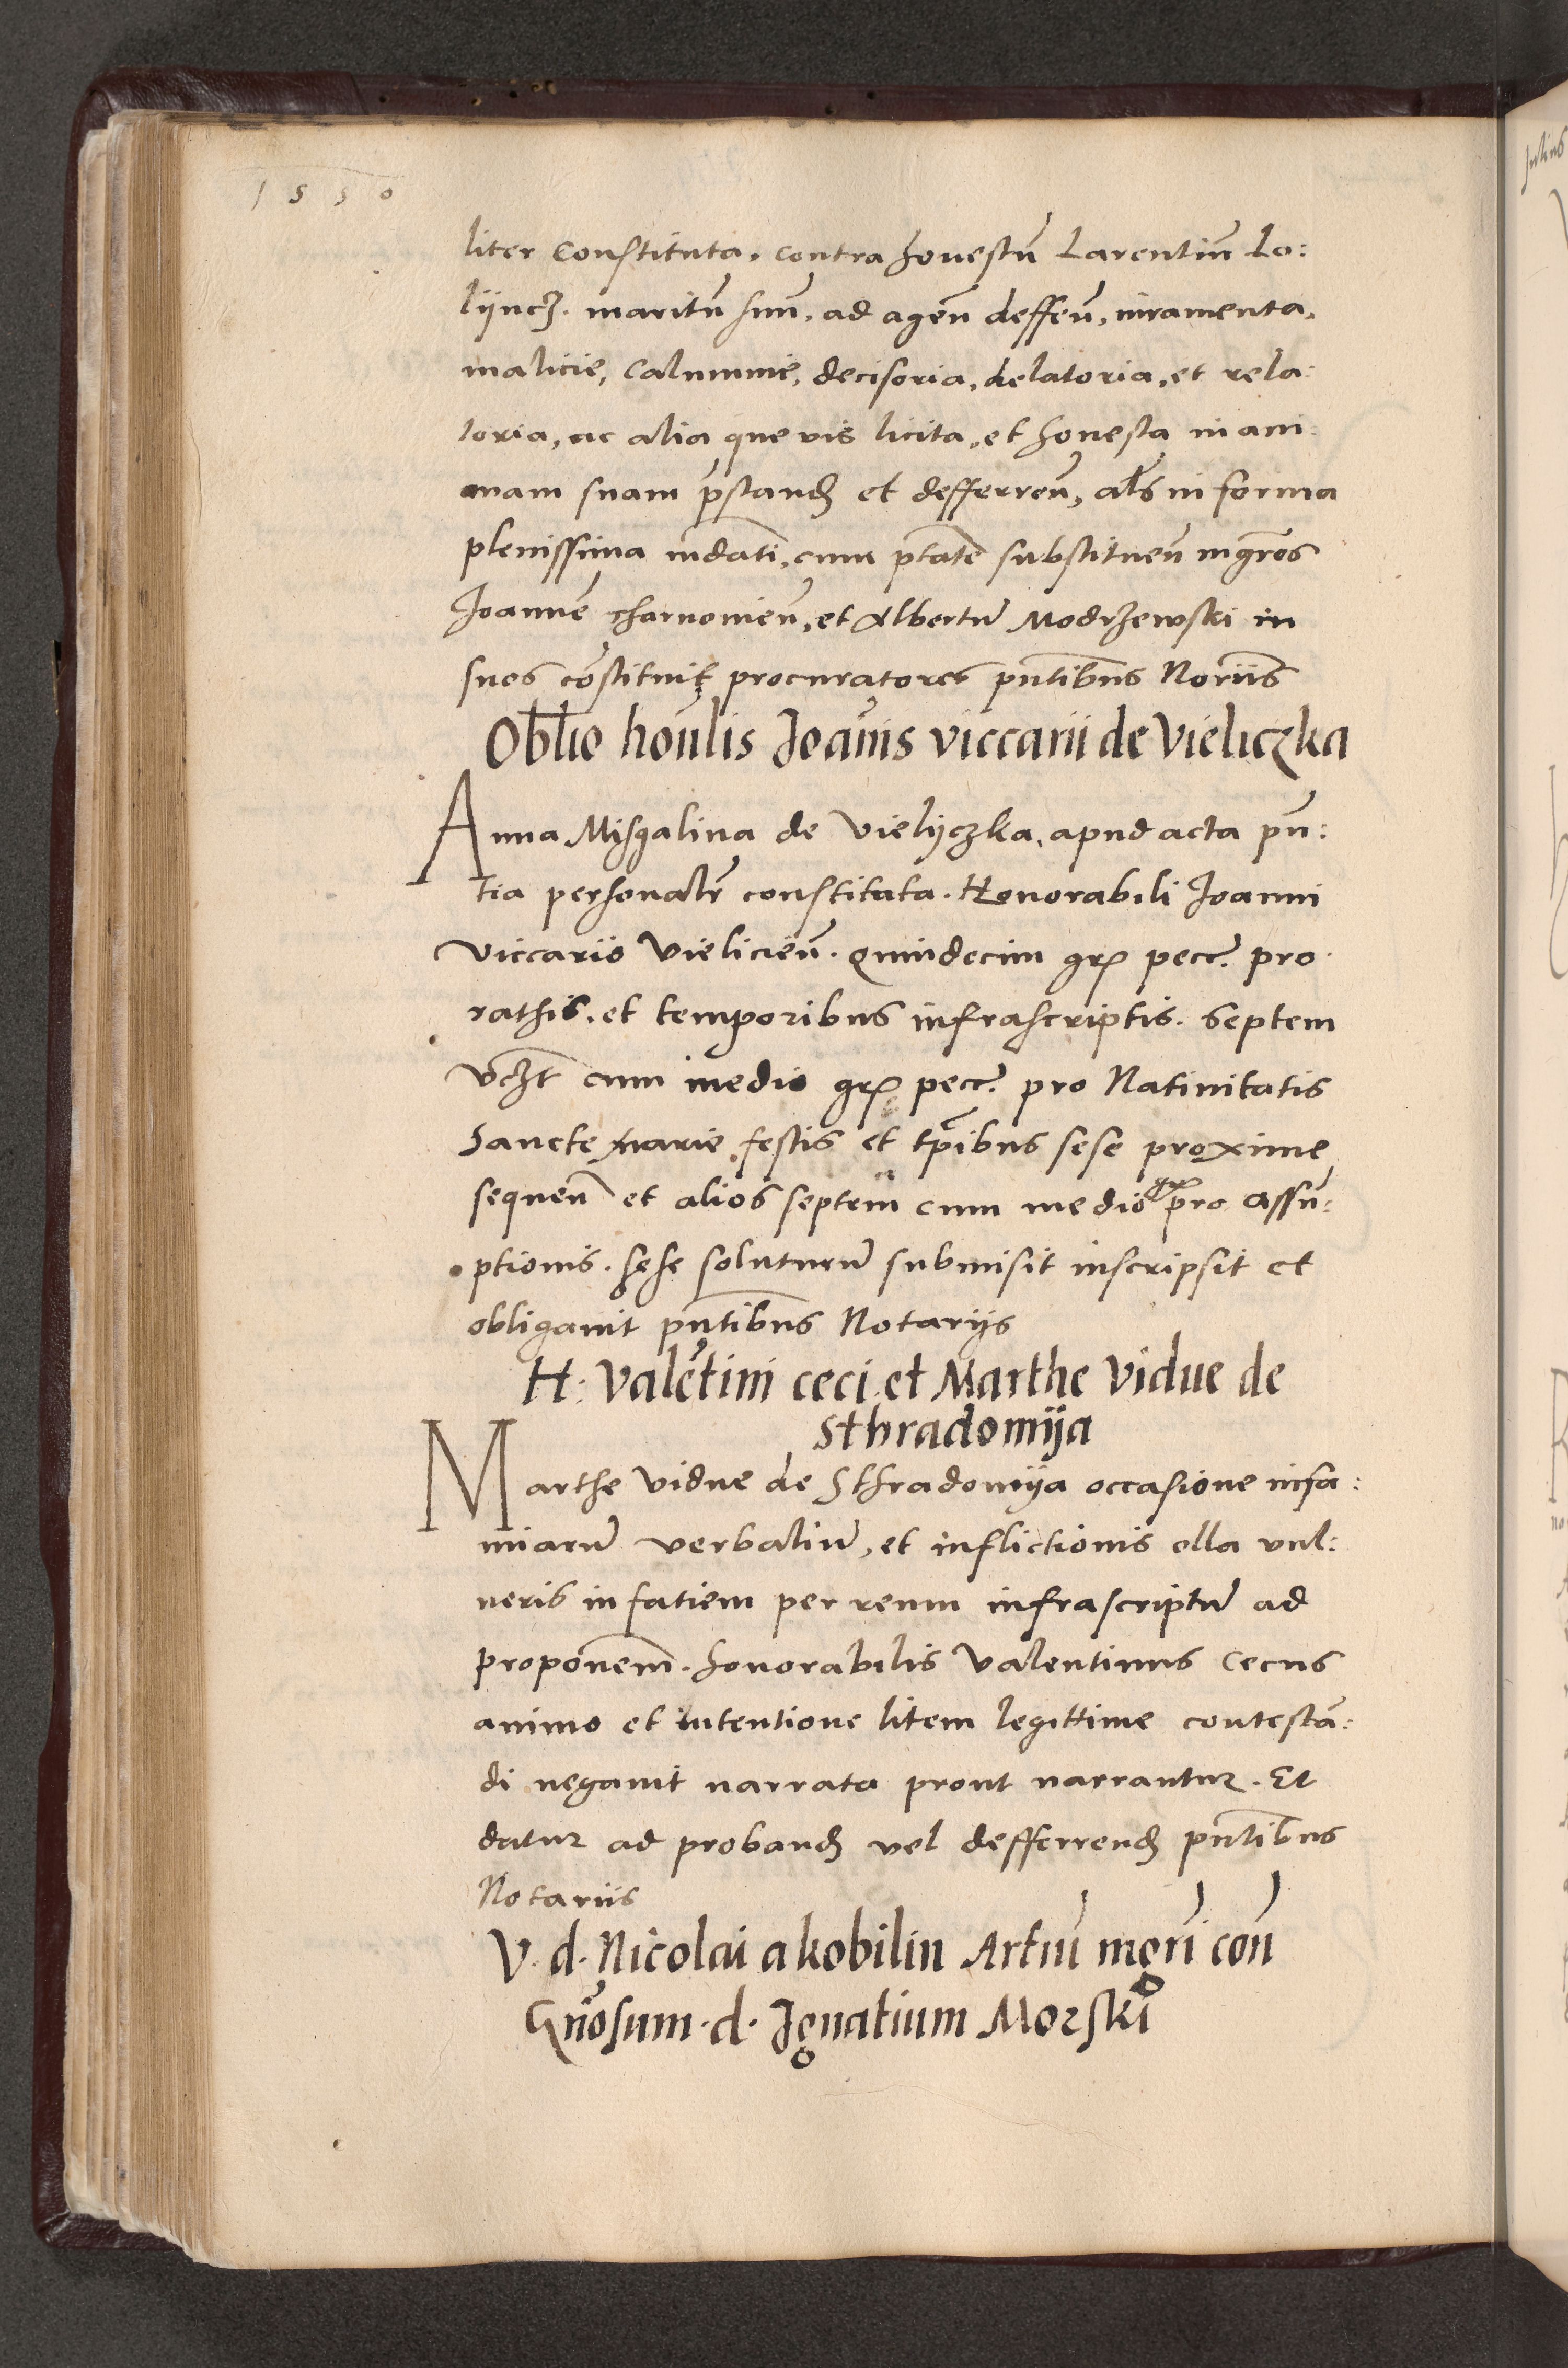 1550
liter Constituta. contra honestu̅ Larentiu̅ Lo:
lijncz. maritu̅ suu̅. ad agen̅ deffen̅, iuramenta,
malicie, Calumnie, decisoria, delatoria, et rela:
toria, ac alia que vis licita, et honesta in ani:
mam suam p̅standȝ et defferren̅, al̅s in forma
plenissima m̅dati, cum p̅tate̅ substituen̅ mg̅ros
Joanne̅ charnovien̅, et Albertu̅ Modrzewski in
suos co̅stituit procuratores pn̅tibus No̅riis
Obl̅io hon̅lis Joan̅is viccarii de Vieliczka
Anna Misgalina de Vielijczka, apud acta pn̅:
tia personalr̅ constituta. Honorabili Joanni
Viccario Vielicien̅. quindecim gr̅ pecc. pro
rathis, et temporibus infrascriptis. Septem
vcz̅t cum medio gr̅ pecc. pro Nativitatis
Sancte Marie festis et tp̅ibus sese proxime
sequen̅ et alios septem cum medio gr̅ pro assu̅:
ptionis. sese soluturu̅ submisit inscripsit et
obligavit pn̅tibus Notarijs
H: Vale̅tini ceci et Marthe Vidue de
Sthradomija
Marthe vidue de Sthradomija occasione infa:
miaru̅ verbaliu̅, et inflictionis olla vul:
neris in fatiem per reum infrascriptu̅ ad
propone̅m. honorabilis Valentinus Cecus
animo et intentione litem legittime contesta̅:
di negavit narrata prout narrantur. Et
datur ad probandȝ vel defferrendȝ pn̅tibus
Notariis
V. d. Nicolai a kobilin Artiu̅ mgr̅i con̅
Gn̅osum. d. Ignatium Morski